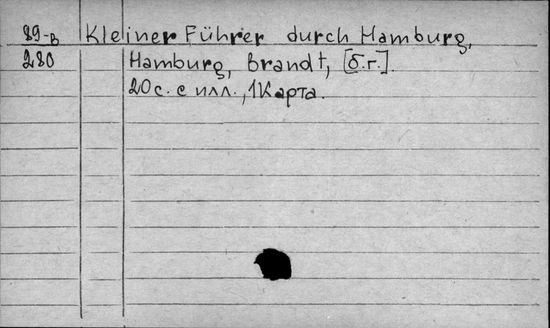 89-в Kleiner Führer durch Hamburg,
280 Hamburg, Brandt, [б.г.].
20с. с илл., 1 Карта.